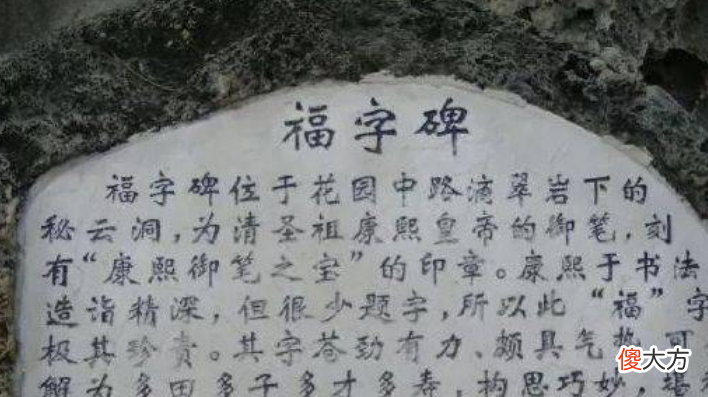 福字碑
福字碑位于花园中路滴翠岩下的
秘云洞，为清圣祖康熙皇帝的御笔，刻
有“康熙御笔之宝”的印章。康熙于书法
造诣精深，但很少题字，所以此“福”字
极其珍贵。其字苍劲有力、颇具气
解为多田多子多才多寿，构思巧妙，堪
傻大方